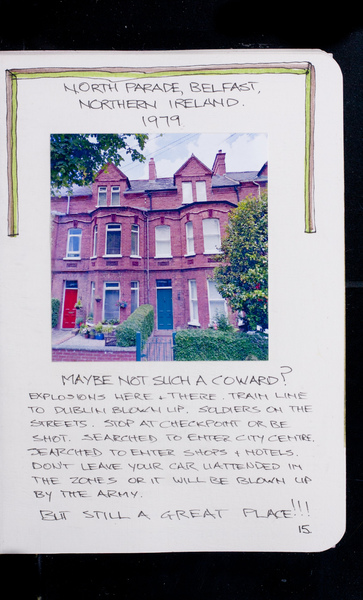 NORTH PARADE, BELFAST,
NORTHERN IRELAND.
1979
MAYBE NOT SUCH A COWARD?
EXPLOSIONS HERE + THERE. TRAIN LINE
TO DUBLIN BLOWN UP. SOLDIERS ON THE
STREETS. STOP AT CHECKPOINT OR BE
SHOT. SEARCHED TO ENTER CITY CENTRE.
SEARCHED TO ENTER SHOPS + HOTELS.
DON'T LEAVE YOUR CAR UNATTENDED IN
THE ZONES OR IT WILL BE BLOWN UP
BY THE ARMY.
BUT STILL A GREAT PLACE!!!
15.